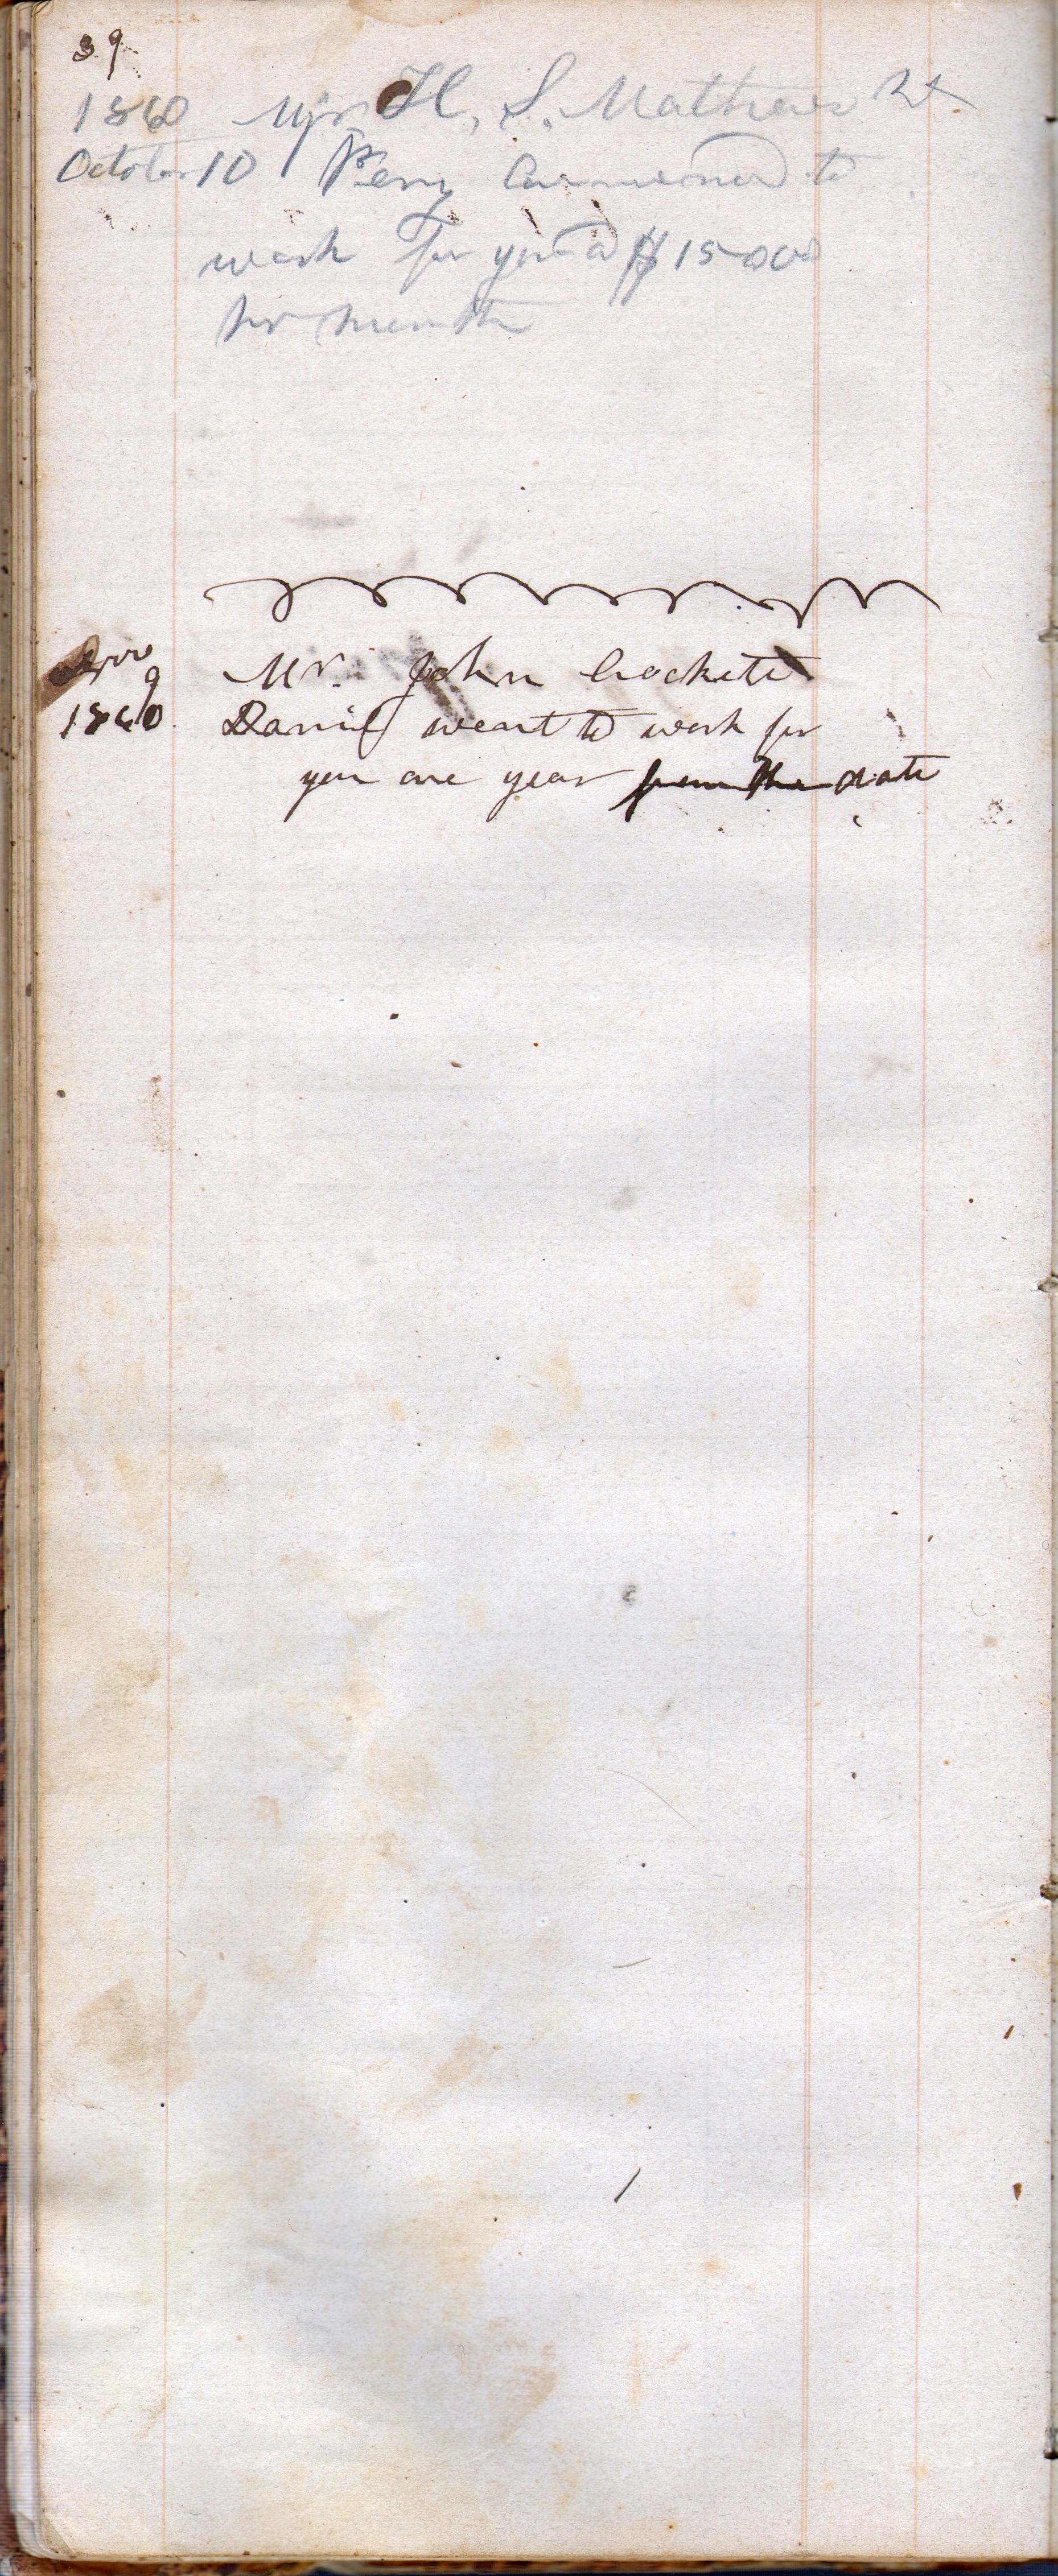 39
1860 Mr H. S. Mathews
October 10 Perry Commenced to
work for you at $15.00
per month
Nov 9 Mr. John Crockett
1860 Daniel went to work for
you one year from the date